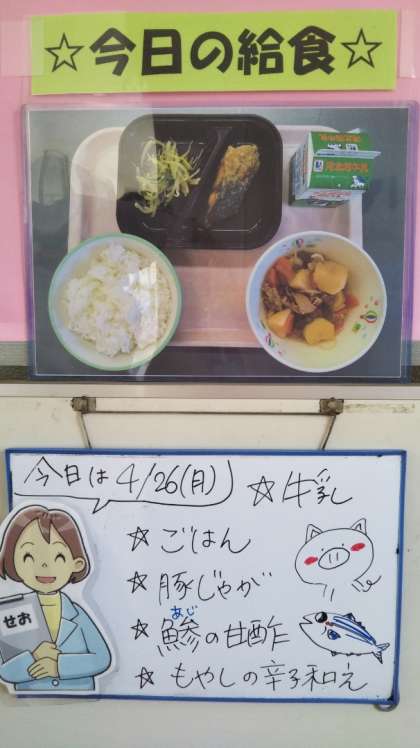 ☆今日の給食☆
今日は4/26(月)
☆牛乳
☆ごはん
☆豚じゃが
あじ
☆鰺の甘酢
☆もやしの辛子和え
せお